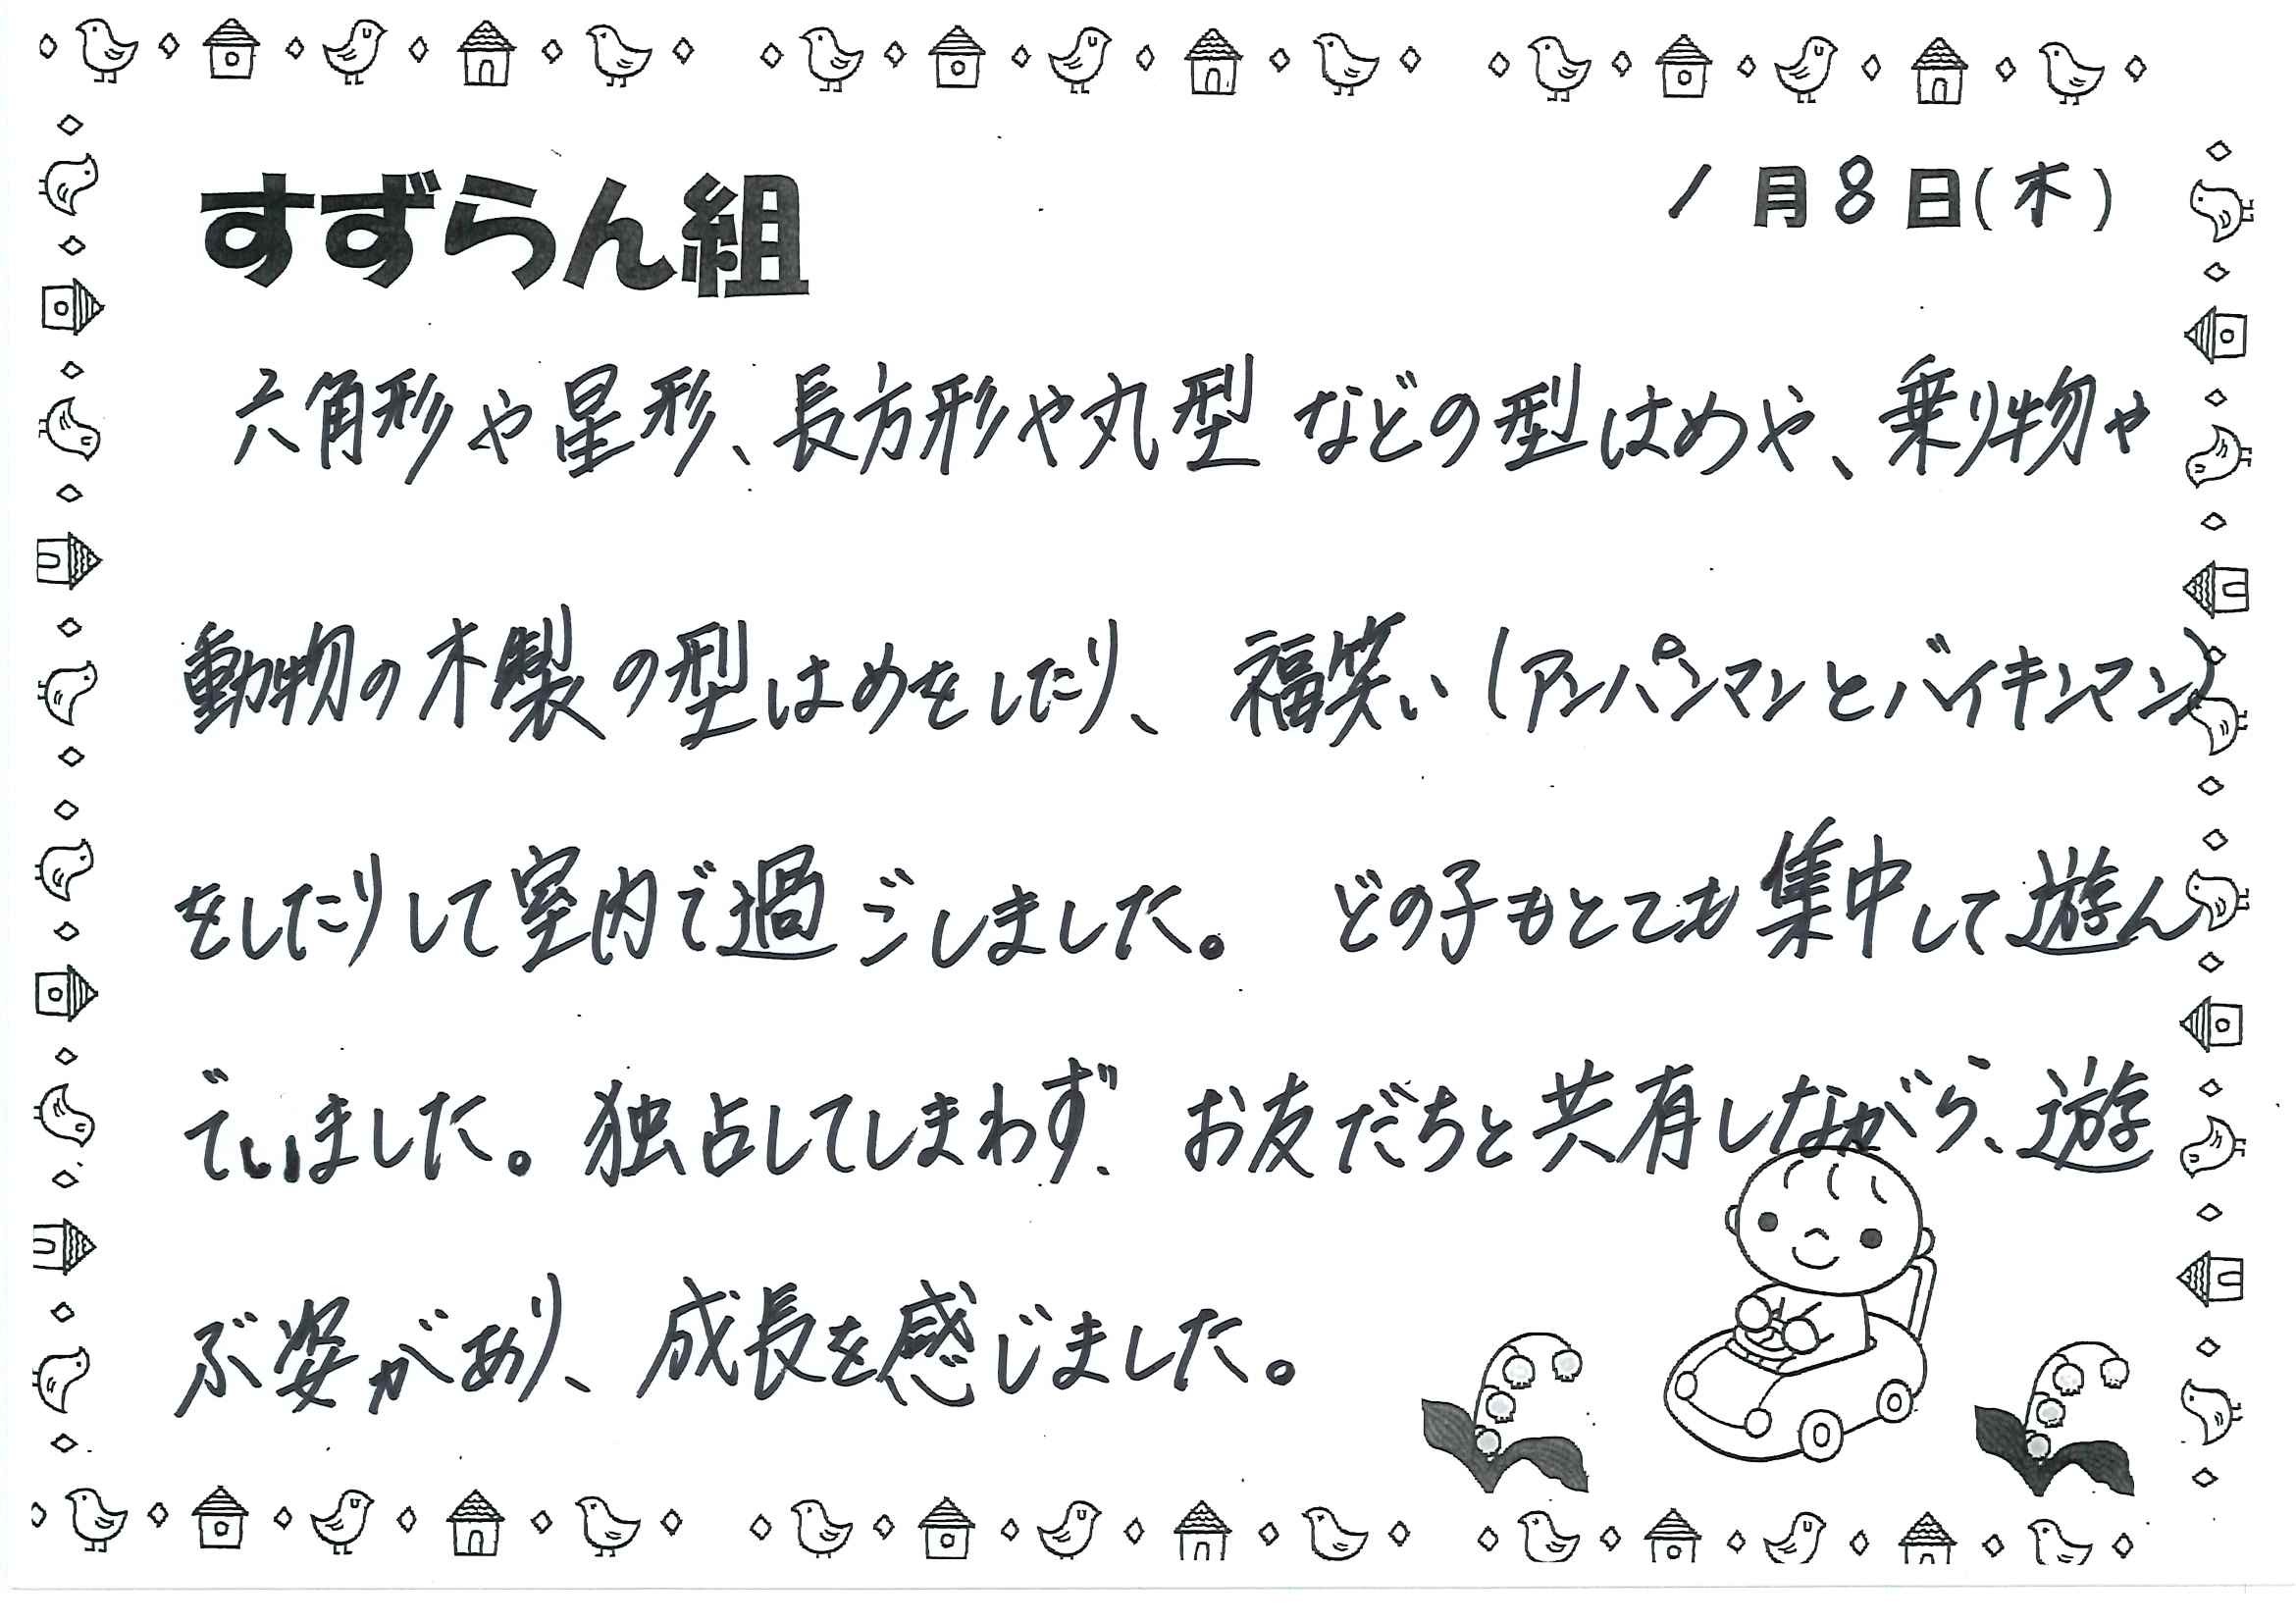 すずらん組
1月8日(木)
六角形や星形、長方形や丸型などの型はめや、乗り物や
動物の木製の型はめをしたり、福笑い(アンパンマンとバイキンマン)
をしたりして室内で過ごしました。どの子もとても集中して遊ん
でいました。独占してしまわず、お友だちと共有しながら、遊
ぶ姿があり、成長を感じました。